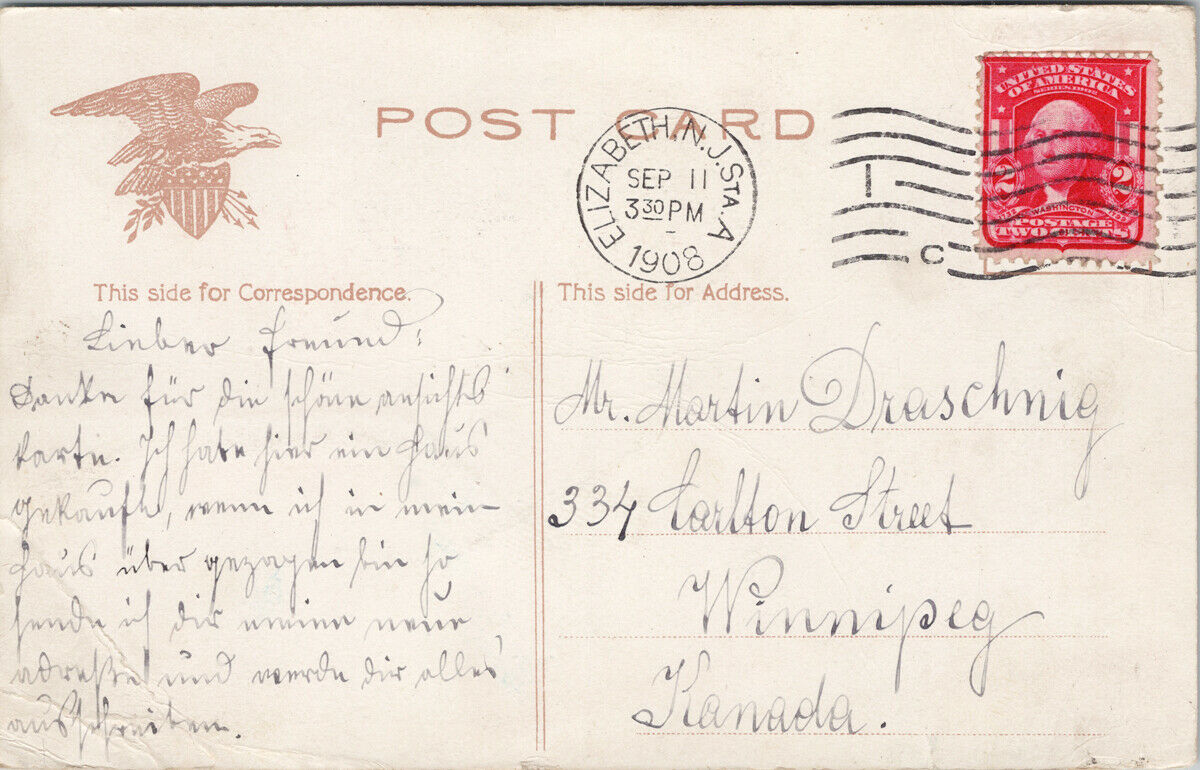 POST CARD
ELIZABETH, N.J. STA. A
SEP 11
3 30 PM
1908
1
C
UNITED STATES
OF AMERICA
SERIES 1902
2 2
WASHINGTON
POSTAGE
TWO CENTS
This side for Correspondence.
Lieber Freund:
Danke für die schöne ansichts
karte. Ich habe hier ein Haus
gekauft, wenn ich in mein
Haus über gezogen bin so
sende ich dir meine neue
adresse und werde dir alles
ausschreiben.
This side for Address.
Mr. Martin Draschnig
334 Carlton Street
Winnipeg
Kanada.